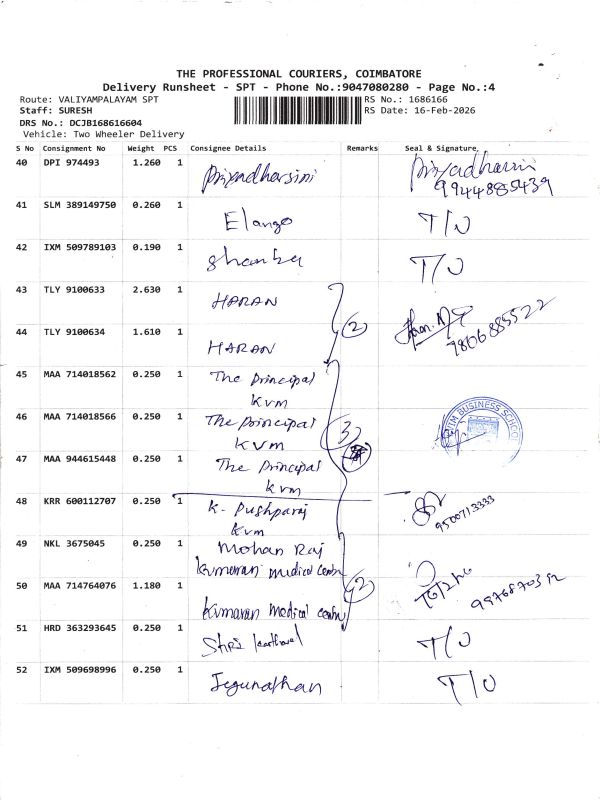 THE PROFESSIONAL COURIERS, COIMBATORE
Delivery Runsheet - SPT - Phone No.:9047080280 - Page No.:4
Route: VALIYAMPALAYAM SPT
RS No.: 1686166
Staff: SURESH
RS Date: 16-Feb-2026
DRS No.: DCJB168616604
Vehicle: Two Wheeler Delivery
S No Consignment No Weight PCS Consignee Details Remarks Seal & Signature
40 DPI 974493 1.260 1 Priyadharsini Priyadharsini
9944885439
41 SLM 389149750 0.260 1 Elango T/O
42 IXM 509789103 0.190 1 T/O
43 TLY 9100633 2.630 1 HARAN
2
9806885522
44 TLY 9100634 1.610 1 HARAN
45 MAA 714018562 0.250 1 The Principal
KVM
46 MAA 714018566 0.250 1 The Principal
KVM 3
BUSINESS SCHOOL
47 MAA 944615448 0.250 1 The Principal
KVM
48 KRR 600112707 0.250 1 K. Pushparaj
KVM
9500713333
49 NKL 3675045 0.250 1 Mohan Raj
Kumaran Medical Centre
50 MAA 714764076 1.180 1 2
Kumaran Medical Centre
51 HRD 363293645 0.250 1 Shri T/O
52 IXM 509698996 0.250 1 Jegunathan T/O